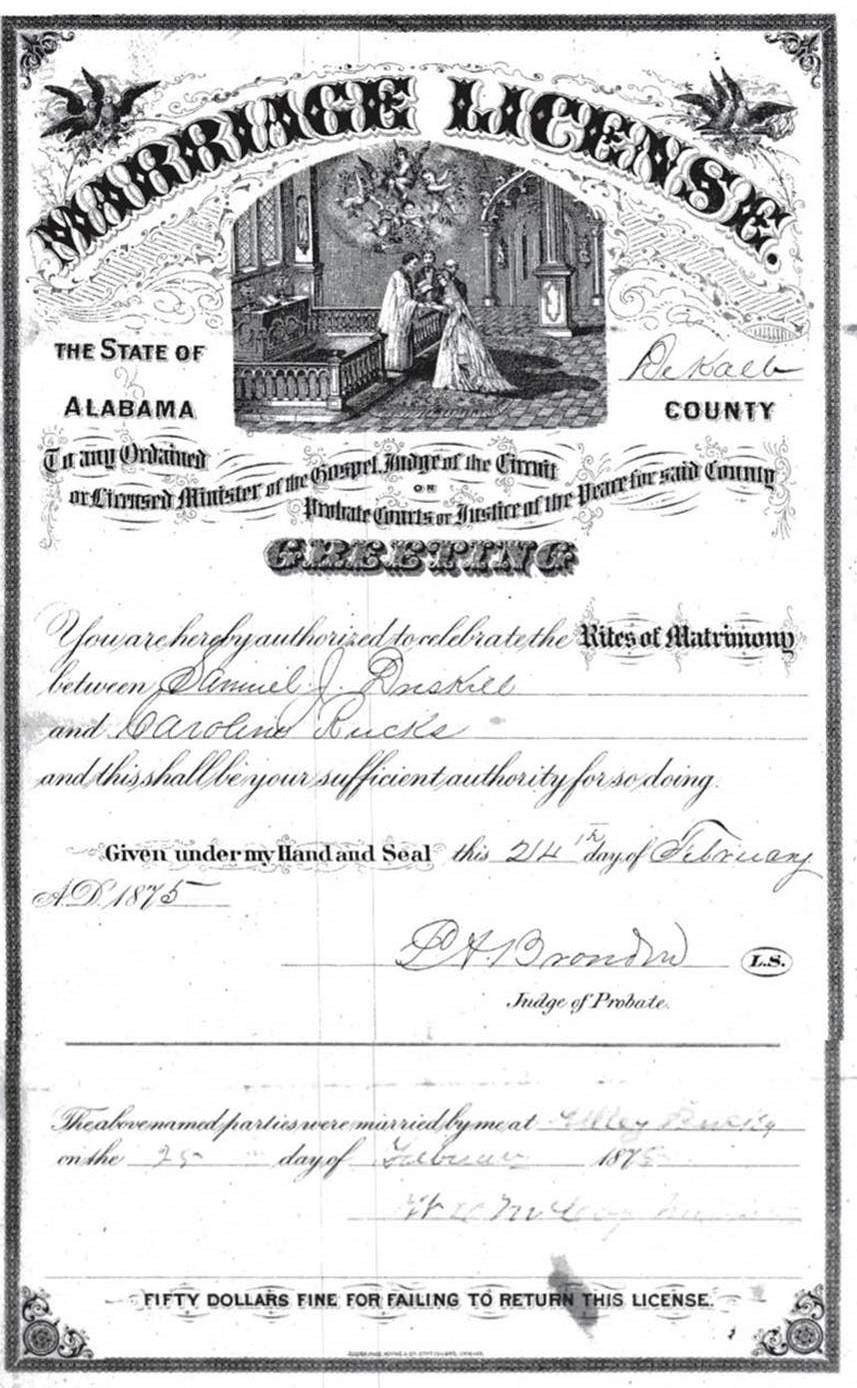 MARRIAGE LICENSE.
THE STATE OF
ALABAMA
DeKalb
COUNTY
To any Ordained
or Licensed Minister of the Gospel, Judge of the Circuit
OR
Probate Courts or Justice of the Peace for said County
GREETING
You are hereby authorized to celebrate the Rites of Matrimony
between Samuel J. Driskill
and Caroline Rucks
and this shall be your sufficient authority for so doing.
Given under my Hand and Seal this 24th day of February
A.D. 1875
L.S.
Judge of Probate.
The above named parties were married by me at
on the 25 day of 187
FIFTY DOLLARS FINE FOR FAILING TO RETURN THIS LICENSE.